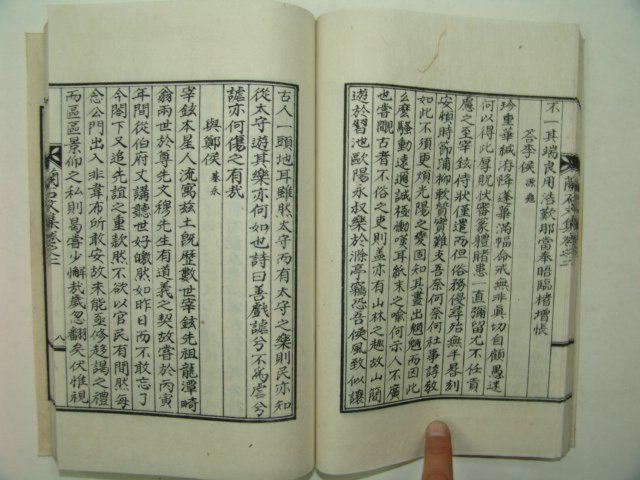 不一其端良用浩歎那當奉晤臨楮增悵
答李侯
珍重華緘荐降蓬蓽滿幅命戒無非眞切自顧愚迷
何以得此厚貺伏審篆體賭患一直彌留尤不任貢
慮之至宰鉉侍狀僅遣而但俗務侵尋殆無千晷刻
安頓時節蒲柳軟質實難支吾奈何奈何社事諱敎
如此不須更煩光陽之變固知其晝出魍魎而因此
么麽騷動遠邇誠極慟嘆耳紙末之喩何示人不廣
也嘗觀古者不俗之吏則蓋亦有山林之趣故山簡
遊於習池歐陽永叔樂於滁亭竊恐吾侯風致似讓
古人一頭地耳雖然太守而有太守之樂則民亦知
從太守遊其樂亦何如也詩曰善戲謔兮不爲虐兮
謔亦何傷之有哉
與鄭侯
宰鉉本星人流寓玆土既歷數世宰鉉先祖龍潭畸
翁兩世於尊先文穆先生有道義之契故嘗於丙寅
年間從伯府文講聽世好皦然如昨日而不敢忘于
今閤下又追先誼之重欵然不欲以官民有間然每
念公門出入非韋布所敢安故未能亟修趍謁之禮
而區區景仰之私則曷嘗少懈哉歲忽翻矣伏惟視
八